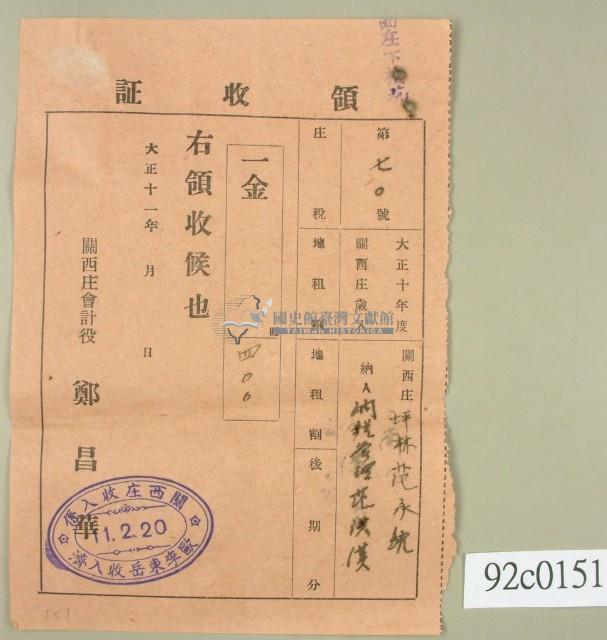 領收証
第七〇號
大正十年度
關西庄歲入
關西庄坪林范永統
納人 納稅管理范洪漢
庄稅
地租額
地租割後期分
一金
四〇〇
右領收候也
大正十一年 月 日
關西庄會計役
鄭昌華
關西庄收入係
11.2.20
歐李東岳收入濟
國史館臺灣文獻館
TAIWAN HISTORICA
92c0151
151